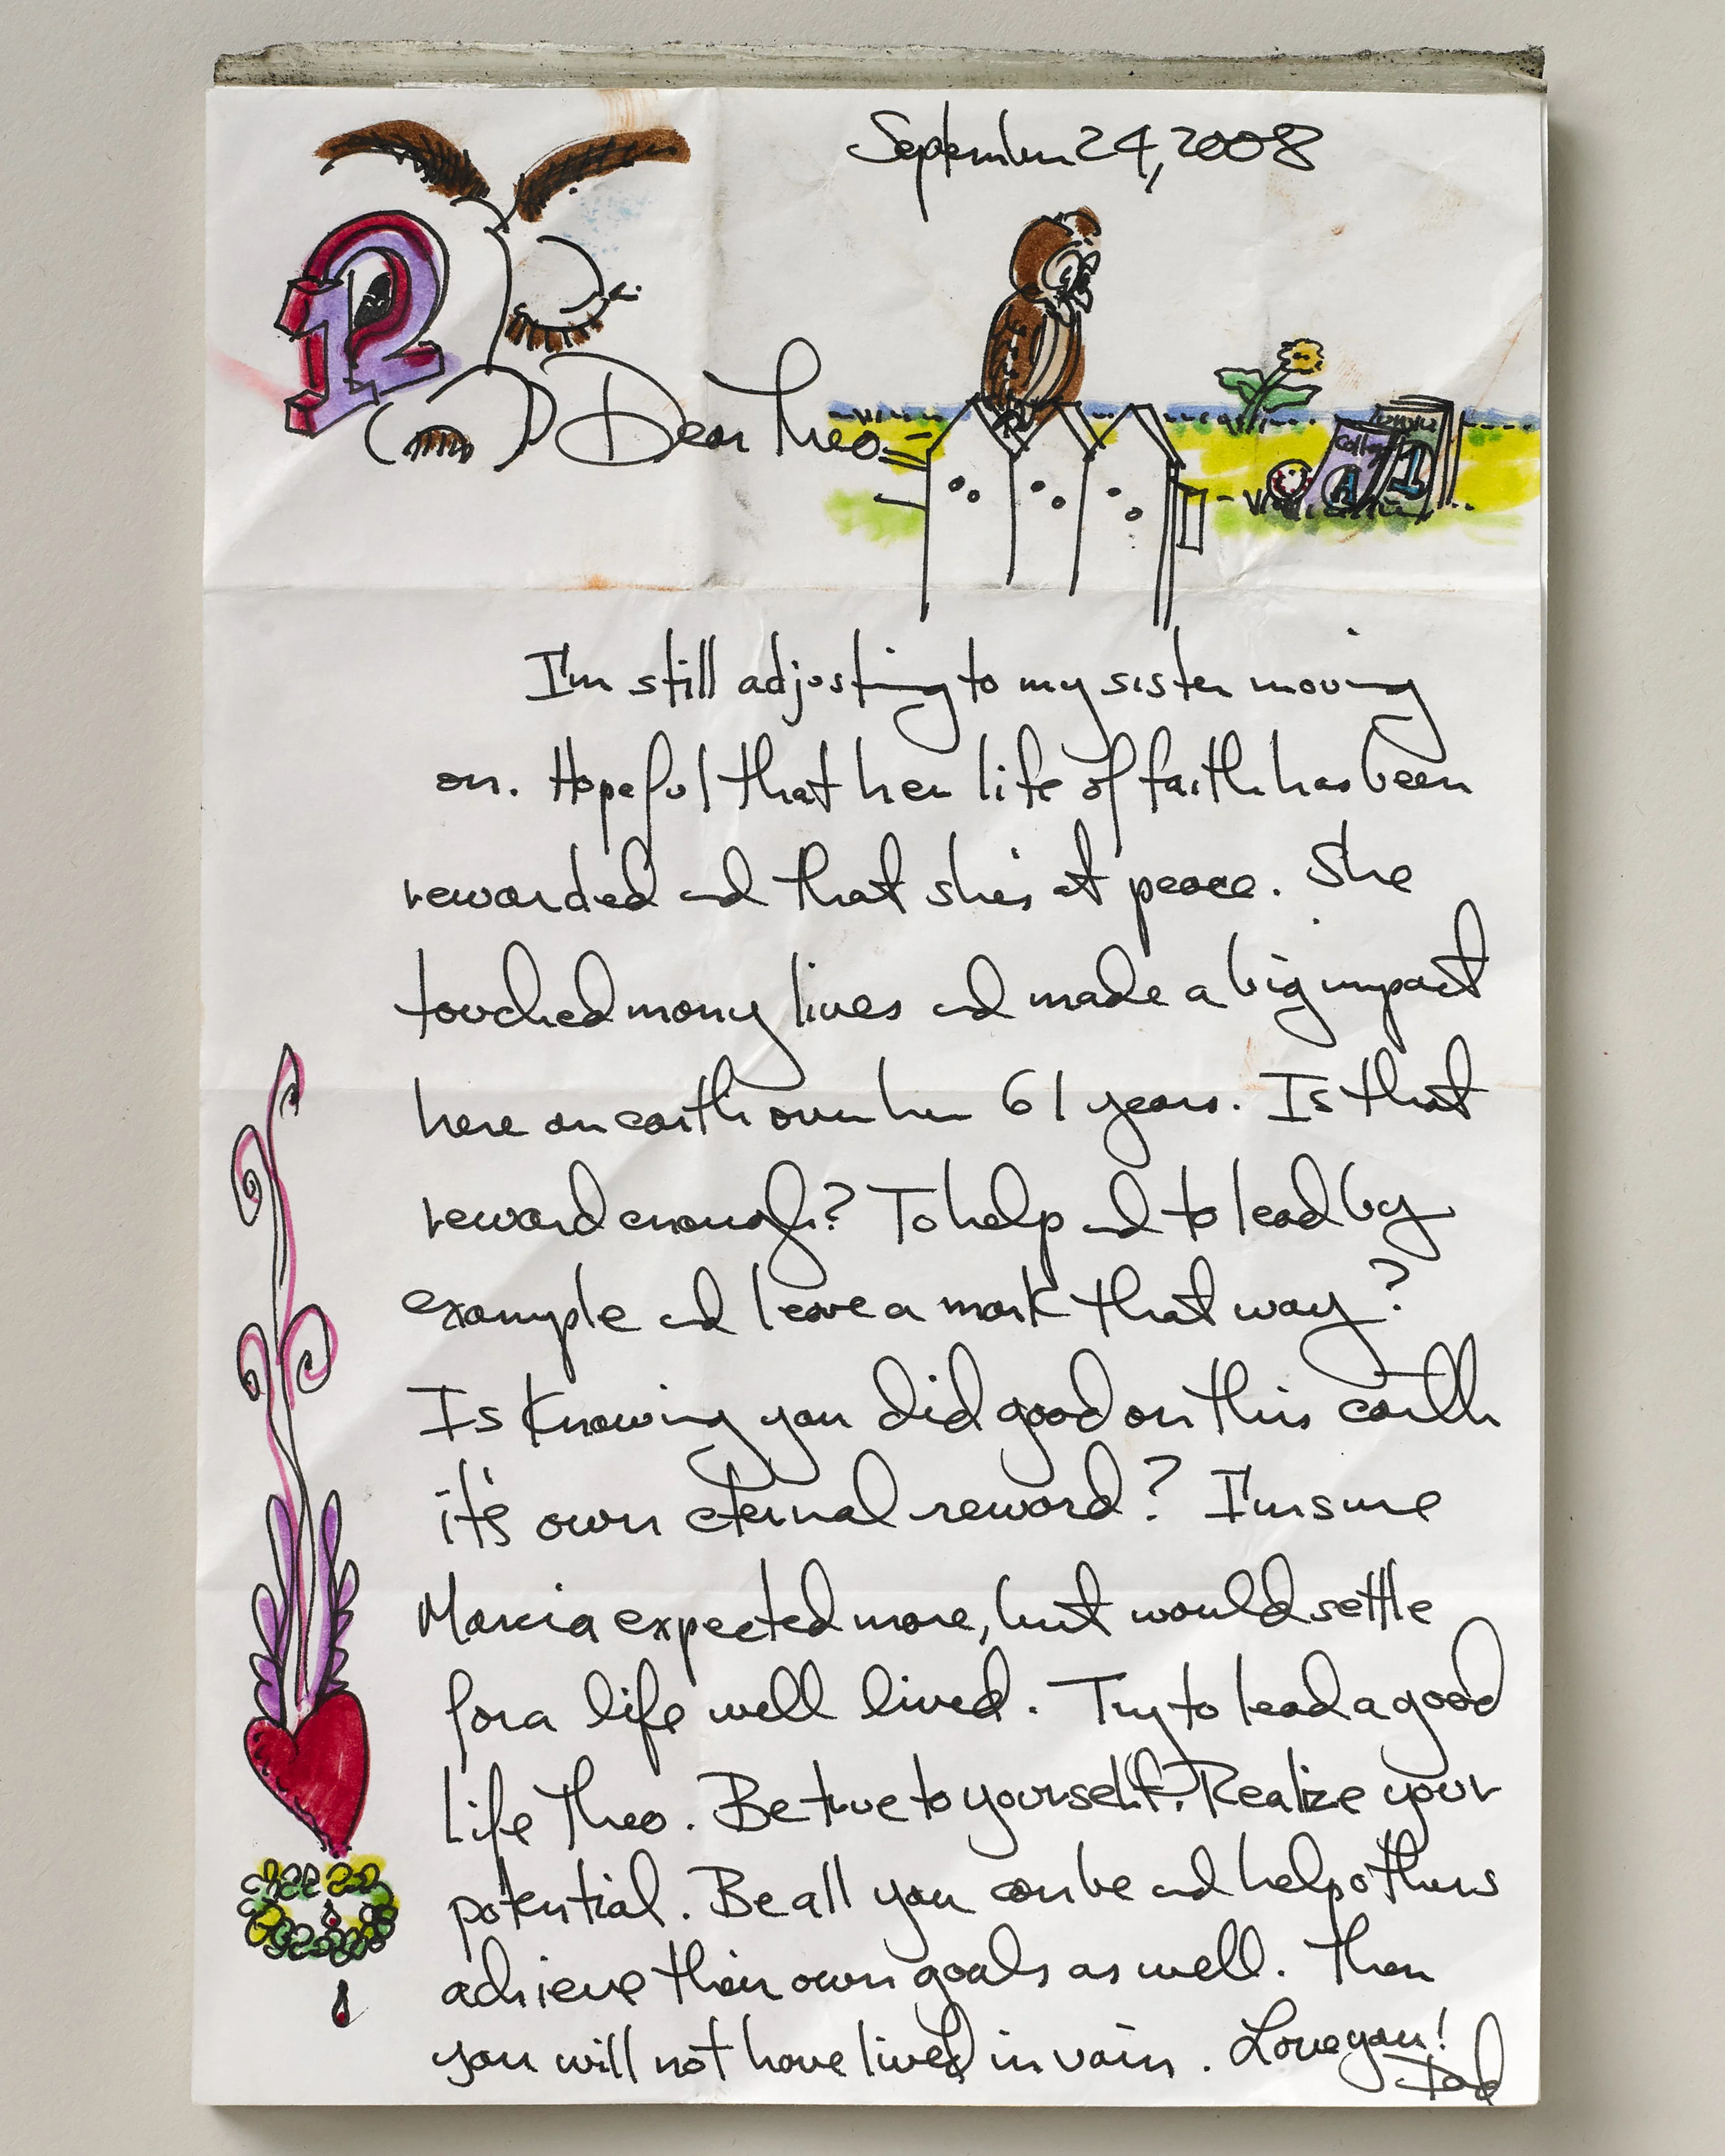 September 24, 2008
12
Dear Theo =
College
A 1
I'm still adjusting to my sister moving
on. Hopeful that her life of faith has been
rewarded and that she's at peace. She
touched many lives and made a big impact
here on earth over her 61 years. Is that
reward enough? To help and to lead by
example and leave a mark that way?
Is knowing you did good on this earth
it's own eternal reward? I'm sure
Marcia expected more, but would settle
for a life well lived. Try to lead a good
life Theo. Be true to yourself. Realize your
potential. Be all you can be and help others
achieve their own goals as well. Then
you will not have lived in vain. Love you!
Dad